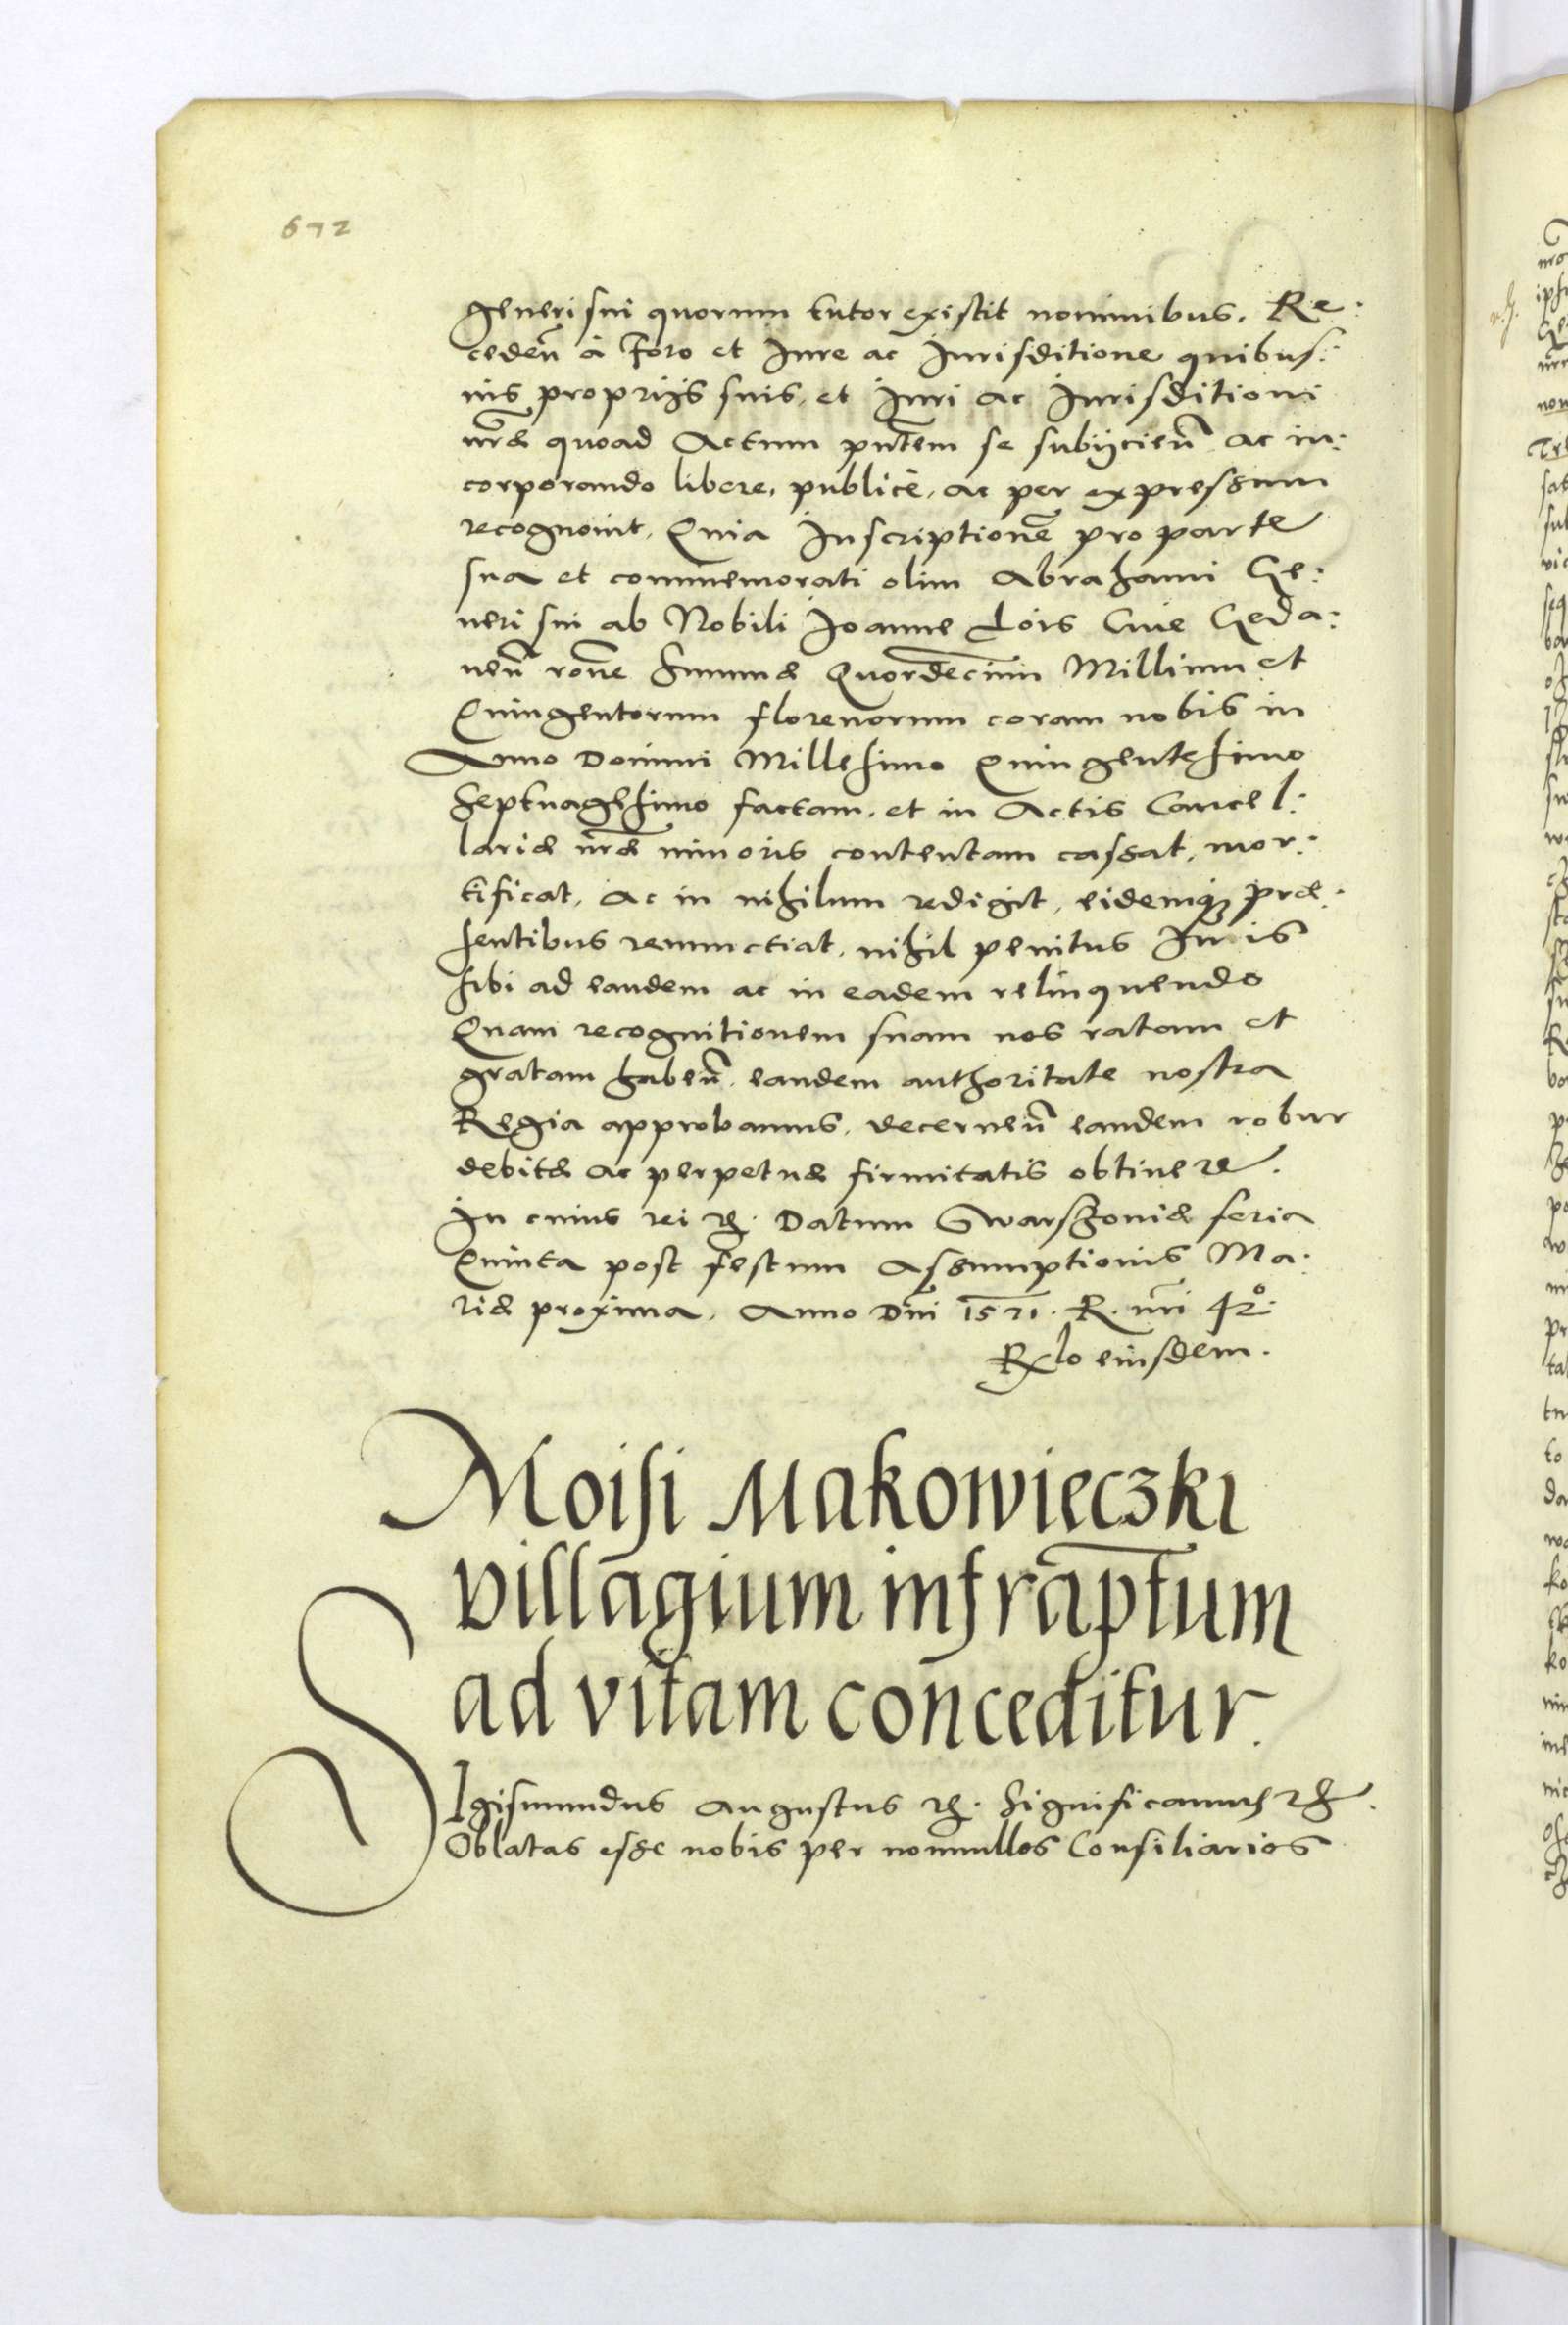 672
generi sui quorum tutor existit nominibus. Re:
cedeñ à Foro et Iure ac Iurisditione quibus:
vis proprijs suis, et Iuri ac Iurisditioni
nr̃æ quoad Actum pñtem se subijcieñ ac in:
corporando libere, publicè, ac per expressum
recognovit, Quia Inscriptionẽ pro parte
sua et commemorati olim Abrahami Ge:
neri sui ab Nobili Ioanne Lois Cive Geda:
neñ rõne Summæ Quordecim Millium et
Quingentorum florenorum coram nobis in
Anno Domini Millesimo Quingentesimo
Septuagesimo factam, et in Actis Cancel:
lariæ nr̃æ minoris contentam cassat, mor:
tificat, ac in nihilum redigit, eidemq; præ:
sentibus renunctiat, nihil penitus Iuris
sibi ad eandem ac in eadem relinquendo
Quam recognitionem suam nos ratam et
gratam habeñ, eandem authoritate nostra
Regia approbamus, decerneñ eandem robur
debitæ ac perpetuæ firmitatis obtinere.
In cuius rei &. Datum Warschoviæ feria
Quinta post festum Assumptionis Ma:
riæ proxima, Anno Dñi 1571. R. nr̃i 42°.
Rlo eiusdem.
Moisi Makowieczki
villagium infraptum
ad vitam conceditur.
SIgismundus Augustus &. Significamus &.
Oblatas esse nobis per nonnullos Consiliarios